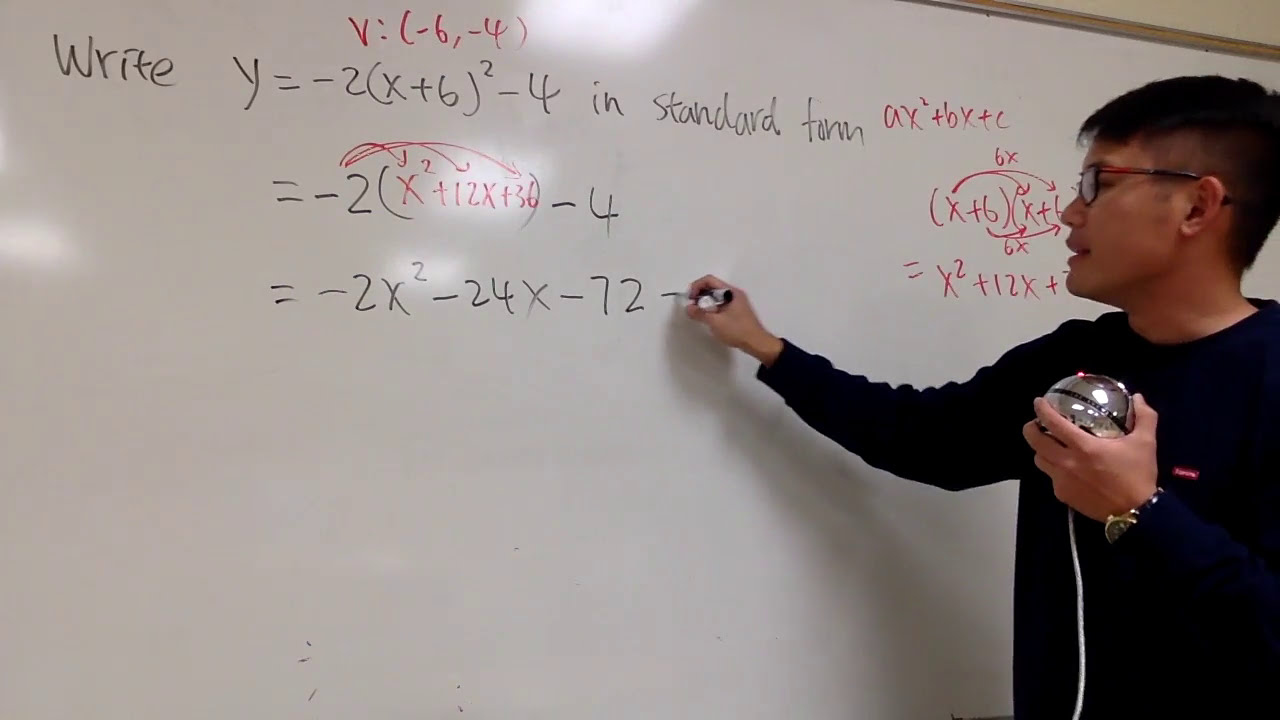 V: (-6, -4)
Write y = -2(x+6)² - 4 in standard form ax²+bx+c
= -2(x²+12x+36) - 4
= -2x² - 24x - 72 -
6x
(x+6)(x+6
6x
= x²+12x+